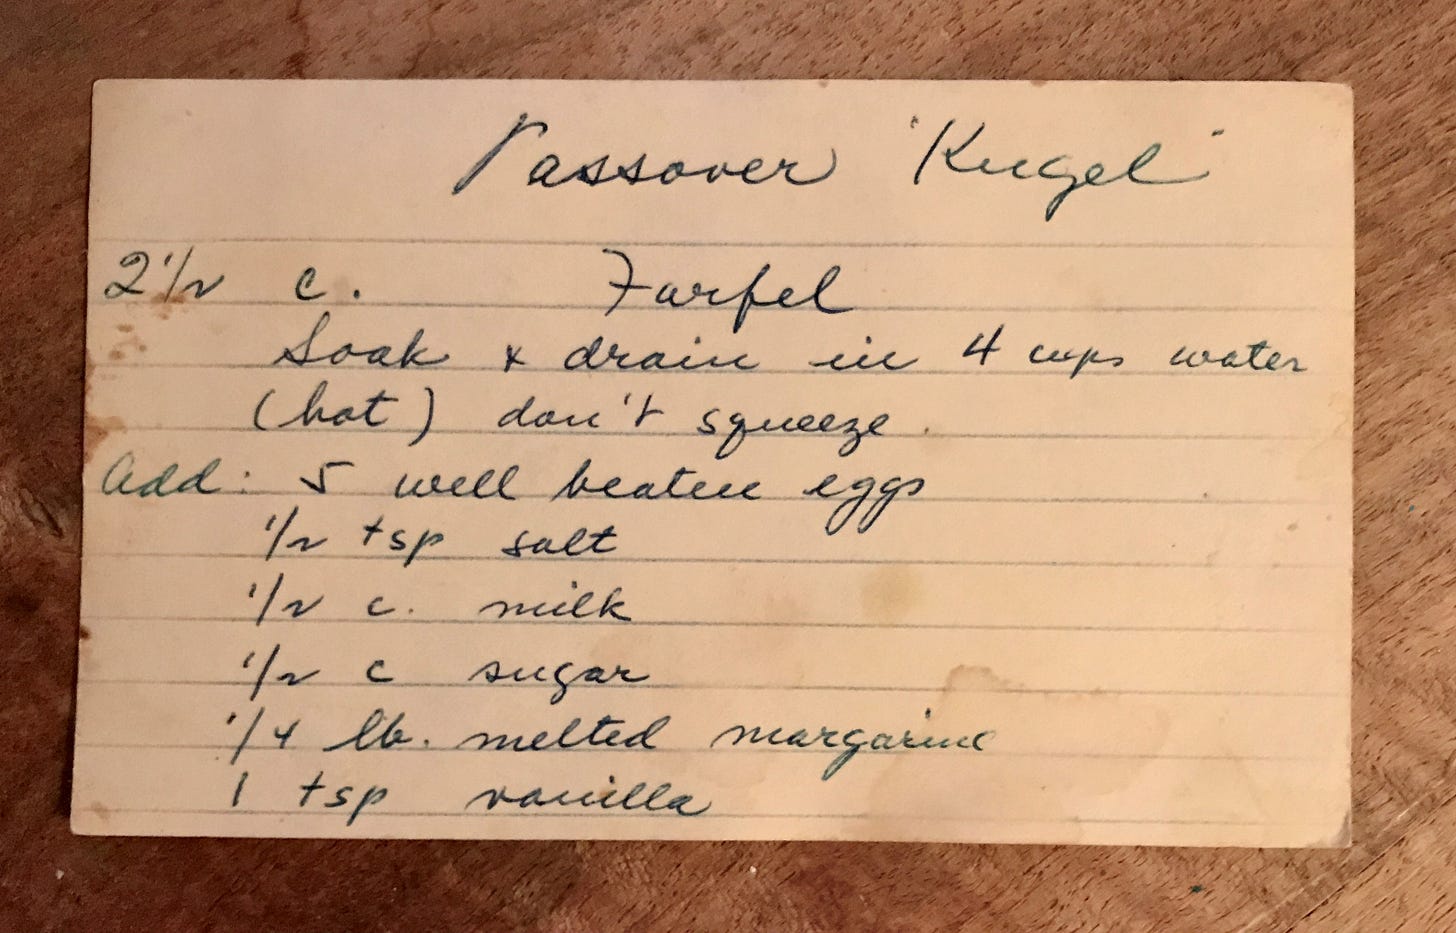 Passover "Kugel"
2 1/2 c. Farfel
Soak & drain in 4 cups water
(hot) don't squeeze.
Add: 5 well beaten eggs
1/2 tsp salt
1/2 c. milk
1/2 c sugar
1/4 lb. melted margarine
1 tsp vanilla